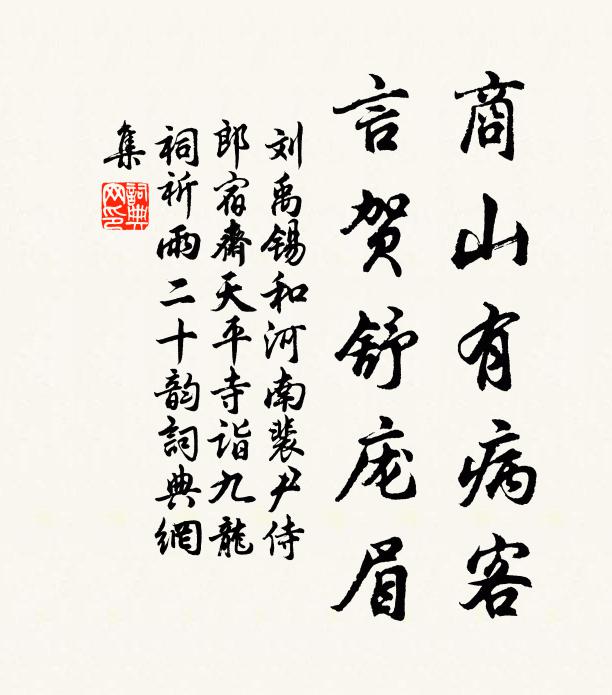 商山有病客
言贺舒庞眉
刘禹锡和河南裴尹侍
郎宿斋天平寺诣九龍
祠祈雨二十韵詞典網
集
詞典
网印